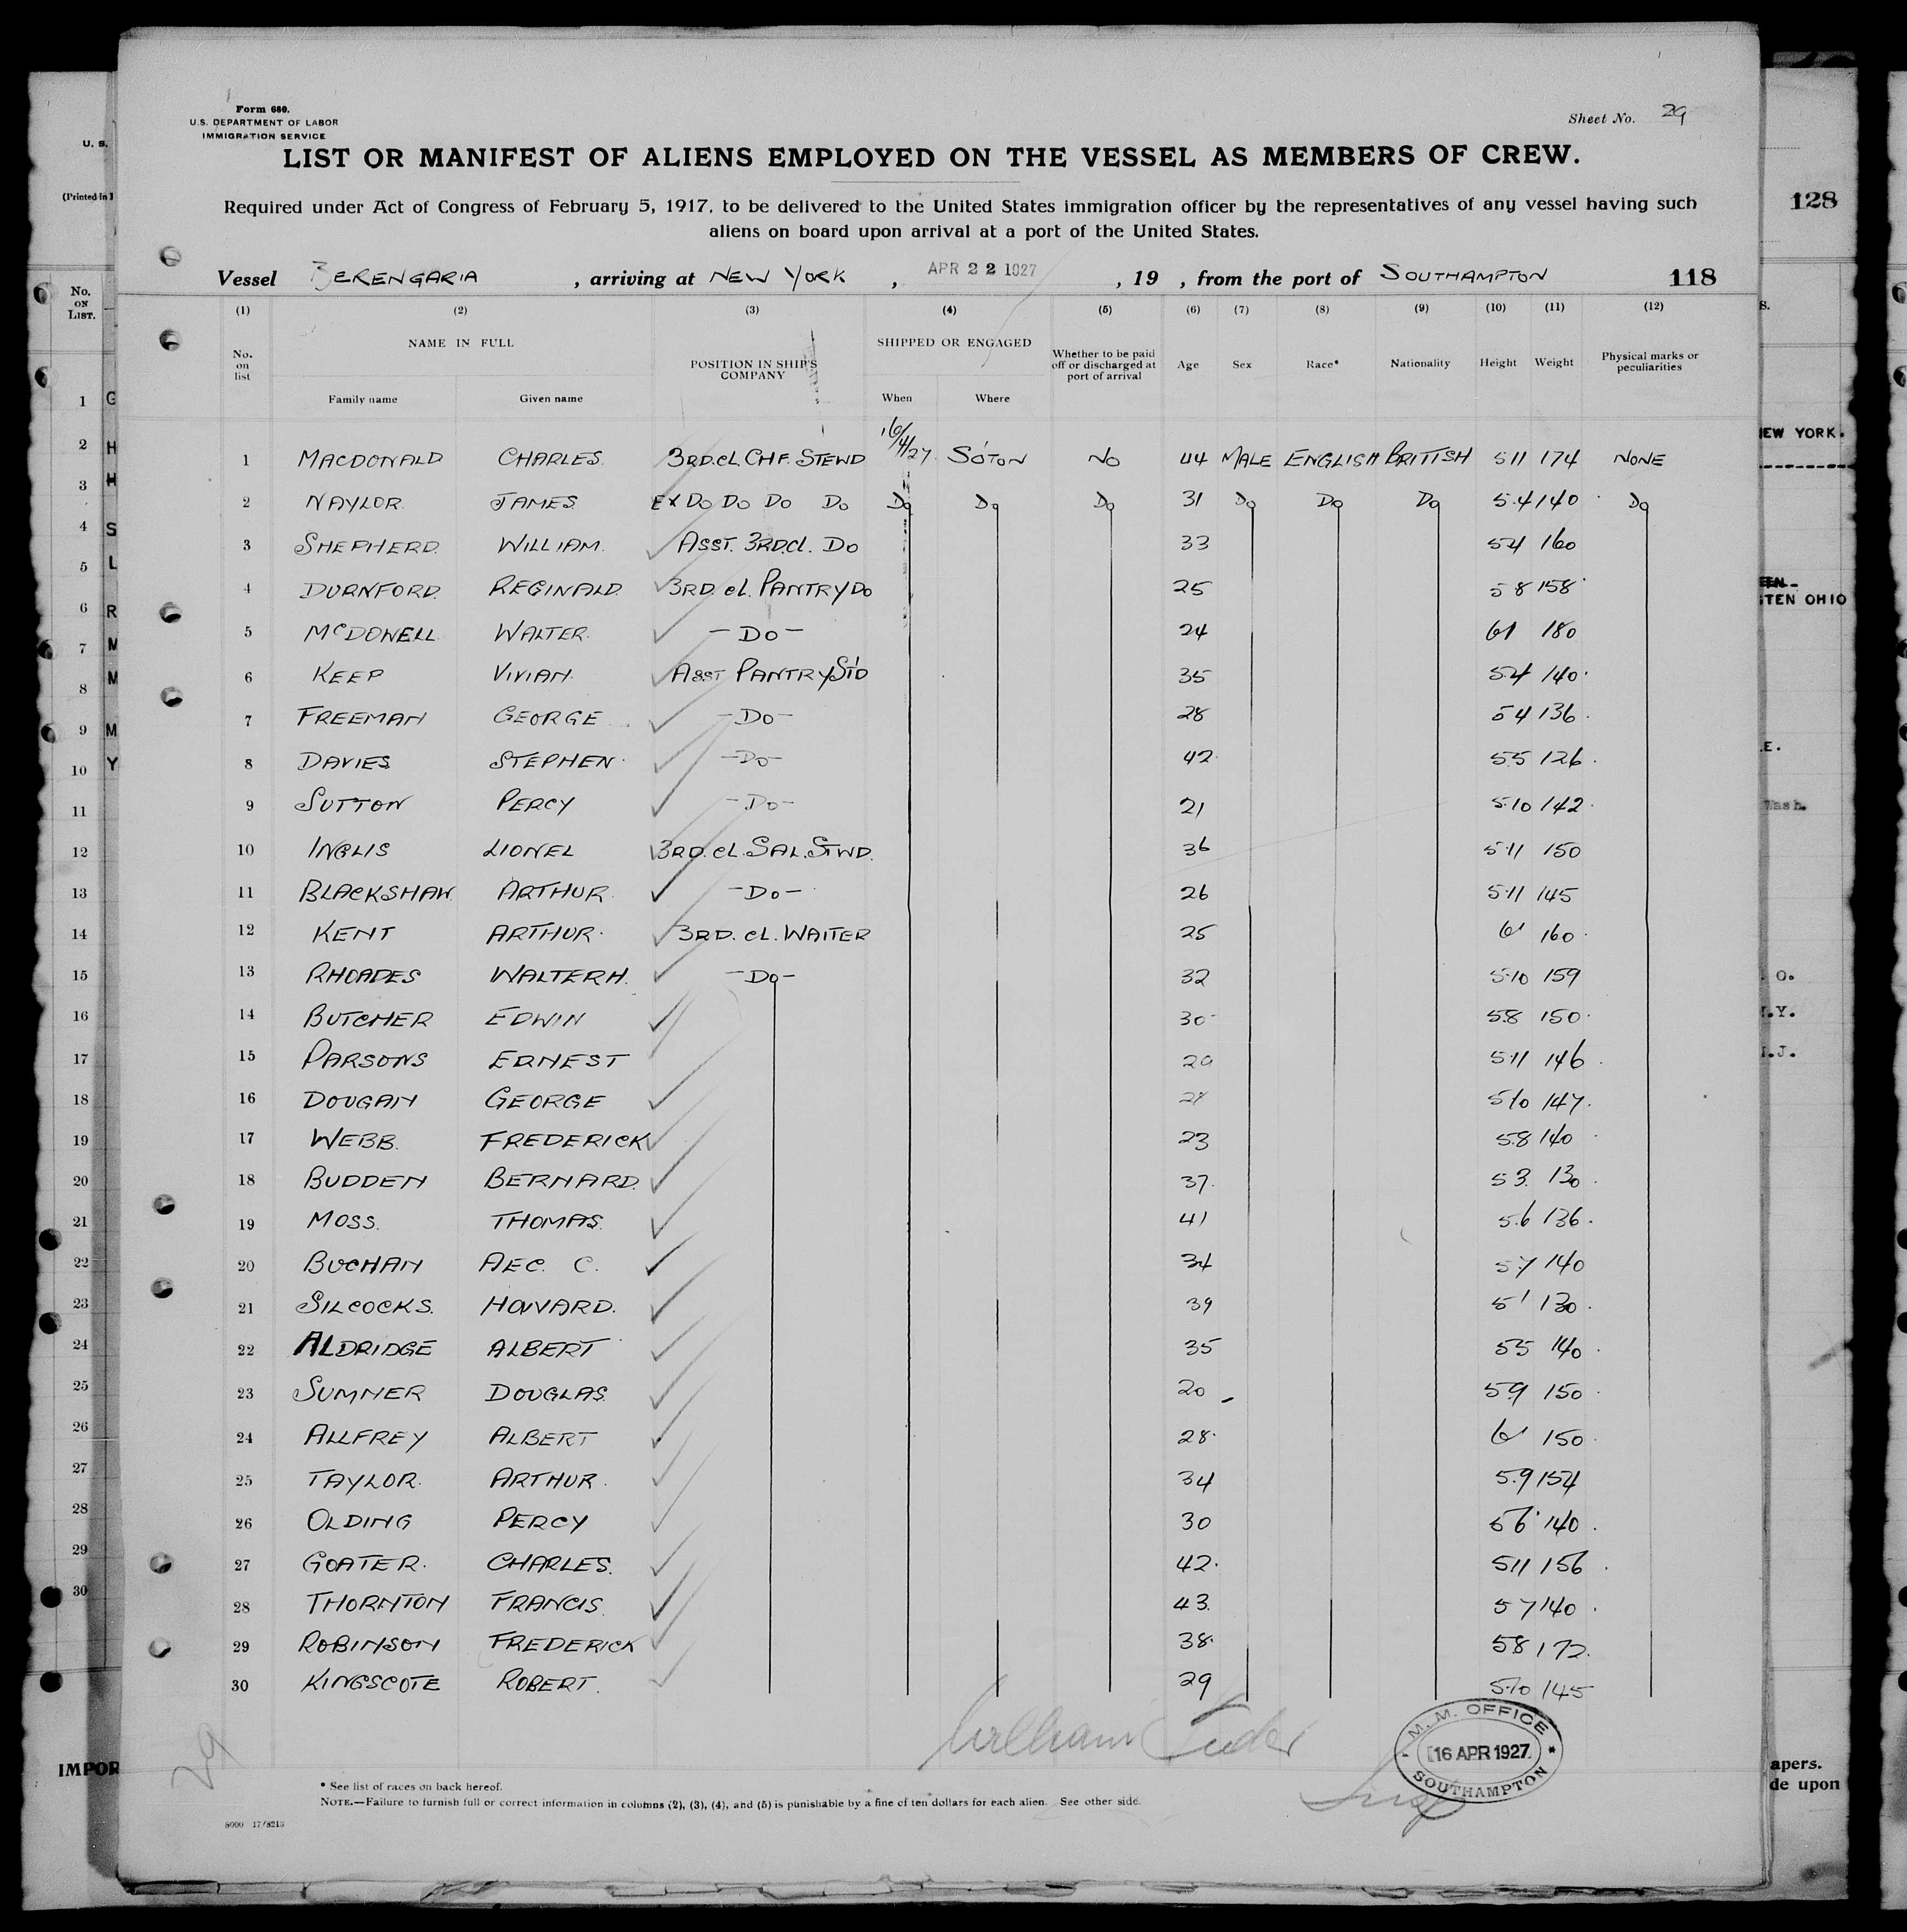 Form 680.
U.S. DEPARTMENT OF LABOR
IMMIGRATION SERVICE
Sheet No. 29
LIST OR MANIFEST OF ALIENS EMPLOYED ON THE VESSEL AS MEMBERS OF CREW.
Required under Act of Congress of February 5, 1917, to be delivered to the United States immigration officer by the representatives of any vessel having such
aliens on board upon arrival at a port of the United States.
Vessel BERENGARIA , arriving at NEW YORK , APR 22 1927 , 19 , from the port of SOUTHAMPTON 118
(1) (2) (3) (4) (5) (6) (7) (8) (9) (10) (11) (12)
No. on list NAME IN FULL Family name Given name POSITION IN SHIP'S COMPANY SHIPPED OR ENGAGED When Where Whether to be paid off or discharged at port of arrival Age Sex Race* Nationality Height Weight Physical marks or peculiarities
1 MACDONALD CHARLES. 3RD.CL.CHF.STEWD 16/4/27. SO'TON NO 44 MALE ENGLISH BRITISH 511 174 NONE
2 NAYLOR. JAMES. EX DO DO DO DO DO DO DO 31 DO DO DO 5.4 140 DO
3 SHEPHERD. WILLIAM. ASST. 3RD.CL. DO 33 54 160
4 DURNFORD. REGINALD. 3RD. CL. PANTRY DO 25 58 158
5 McDOWELL. WALTER. -DO- 24 6' 180
6 KEEP VIVIAN. ASST PANTRY ST'D 35 54 140.
7 FREEMAN GEORGE -DO- 28 54 136.
8 DAVIES STEPHEN. -DO- 42 55 126.
9 SUTTON PERCY -DO- 21 5.10 142.
10 INGLIS LIONEL 3RD.CL.SAL.STWD. 36 5.11 150
11 BLACKSHAW. ARTHUR. -DO- 26 5.11 145
12 KENT ARTHUR. 3RD. CL. WAITER 25 6' 160.
13 RHOADES WALTER H. -DO- 32 5.10 159
14 BUTCHER EDWIN 30 58 150.
15 PARSONS ERNEST 511 146.
16 DOUGAN GEORGE 5/10 147.
17 WEBB. FREDERICK 23 58 140
18 BUDDEN BERNARD. 37. 53. 130.
19 MOSS. THOMAS. 41 5.6 136.
20 BUCHAN AEC. C. 34 5.7 140
21 SILCOCKS. HOWARD. 39 5' 130.
22 ALDRIDGE ALBERT 35 55 140.
23 SUMNER DOUGLAS. 20 59 150.
24 ALLFREY ALBERT 28. 6' 150.
25 TAYLOR. ARTHUR. 34 5.9 154
26 OLDING PERCY 30 56 140.
27 GOATER. CHARLES. 42. 511 156.
28 THORNTON FRANCIS. 43. 57 140.
29 ROBINSON FREDERICK 38. 58 172.
30 KINGSCOTE ROBERT. 29 5.10 145
William
M.M. OFFICE
16 APR 1927
SOUTHAMPTON
29
* See list of races on back hereof.
NOTE.—Failure to furnish full or correct information in columns (2), (3), (4), and (5) is punishable by a fine of ten dollars for each alien. See other side.
5000 17/8213
U. S.
(Printed in
No. ON LIST.
1 G
2 H
3 H
4 S
5 L
6 R
7 M
8 M
9 M
10 Y
11
12
13
14
15
16
17
18
19
20
21
22
23
24
25
26
27
28
29
30
IMPOR
128
S.
NEW YORK.
TEN OHIO
E.
Wash.
O.
.Y.
.J.
apers.
de upon